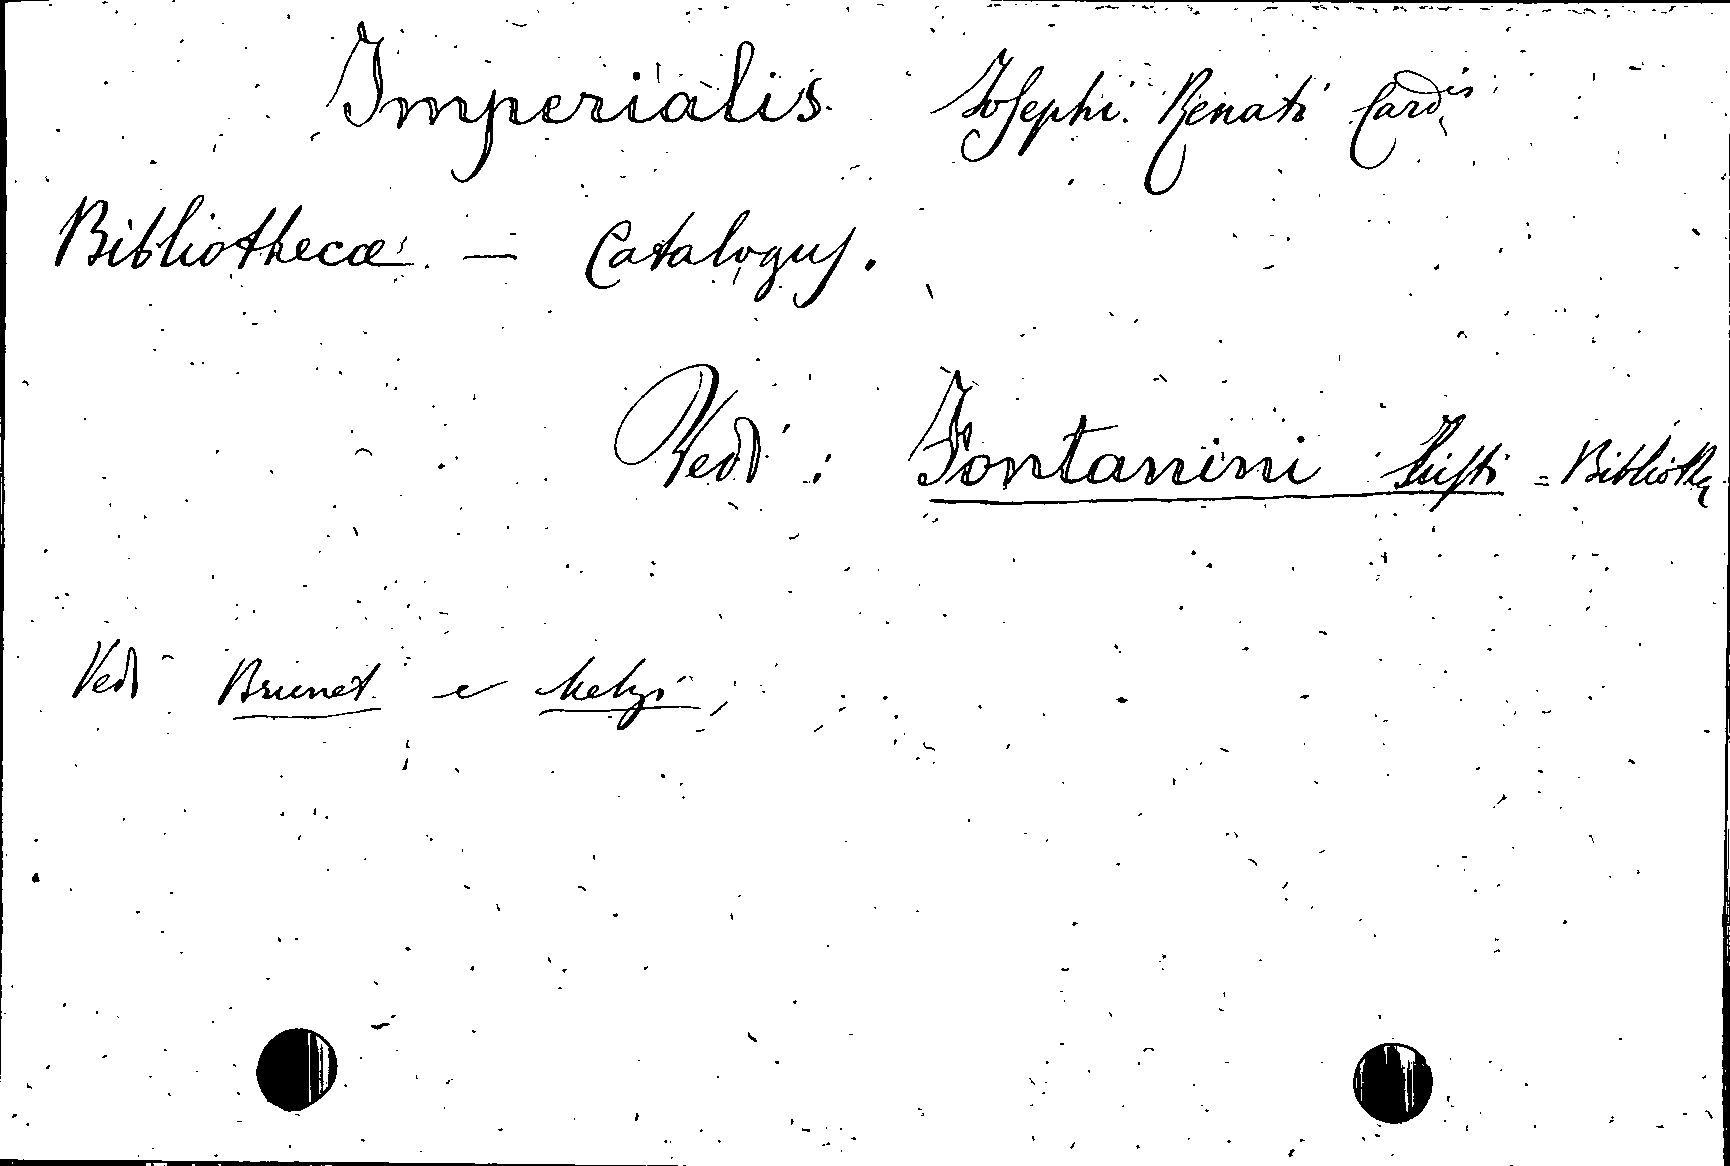 Imperialis Josephi Renati Card.is
Bibliothecæ — Catalogus.
Vedi: Fontanini Justi = Biblioth.
Vedi Brunet e Melzi